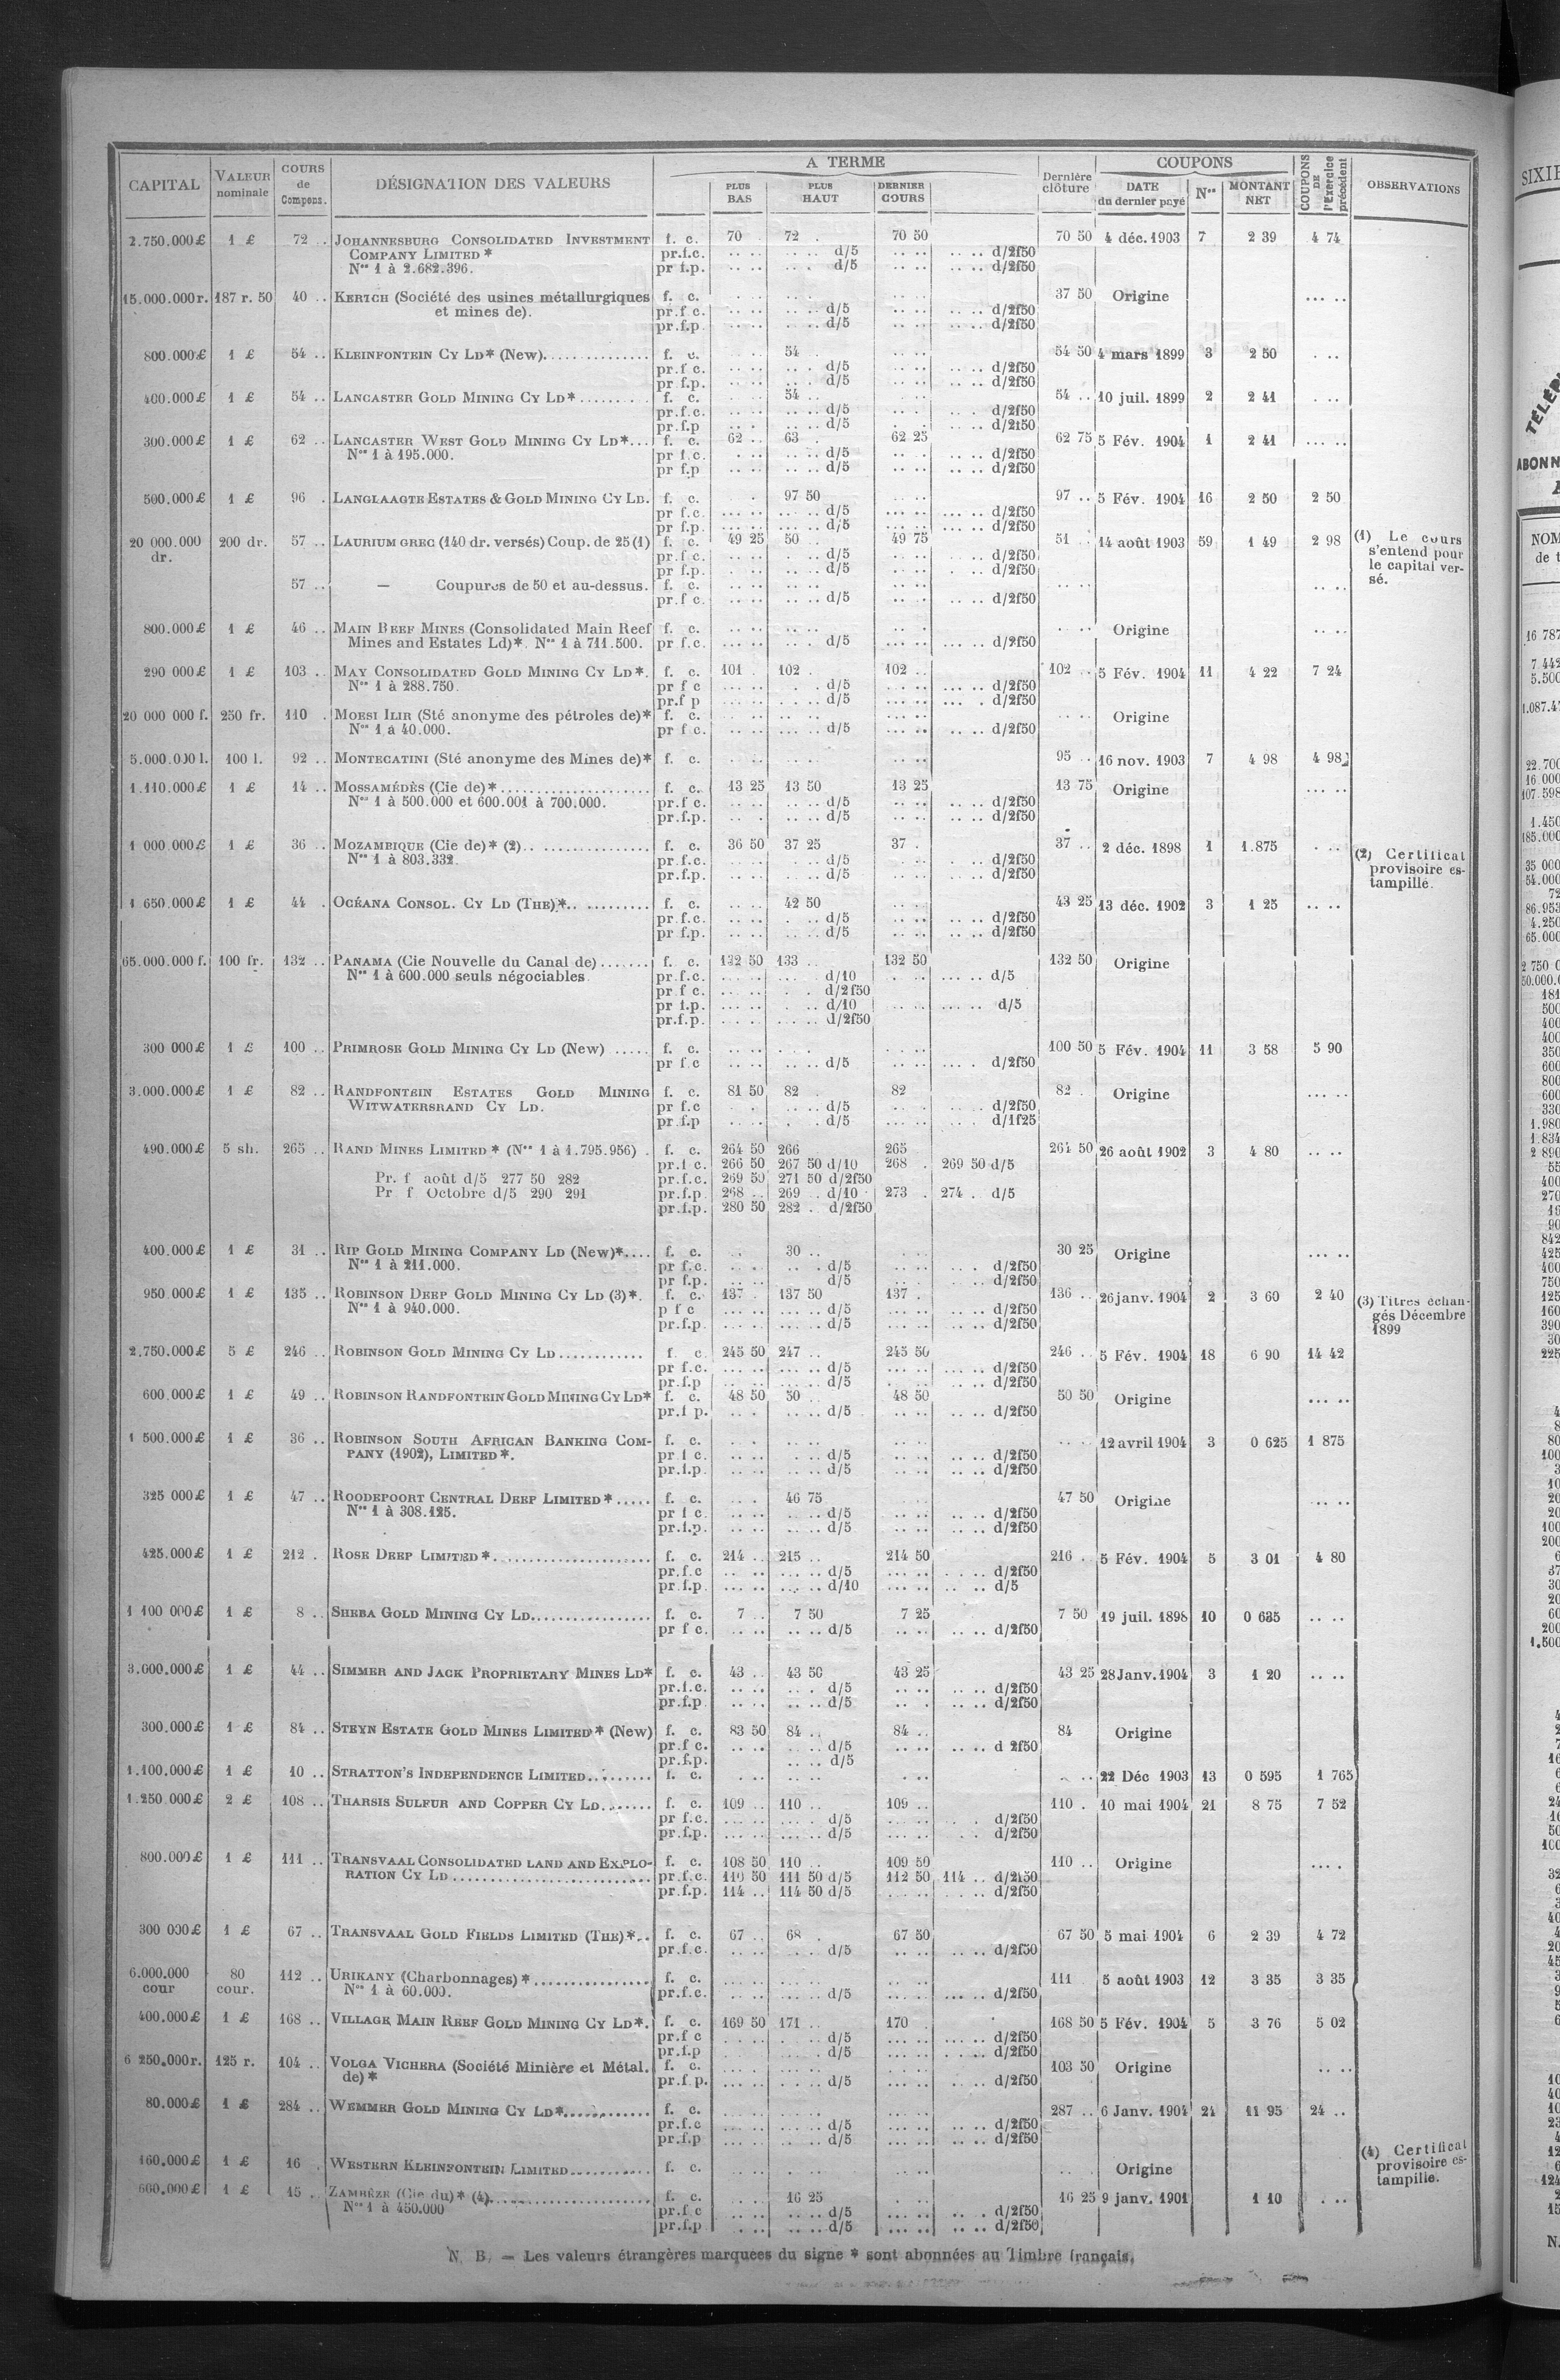 CAPITAL VALEUR nominale COURS de Compens. DÉSIGNATION DES VALEURS A TERME PLUS BAS PLUS HAUT DERNIER COURS Dernière clôture COUPONS DATE du dernier payé Nos MONTANT NET COUPONS DE l'Exercice précédent OBSERVATIONS
2.750.000£ 1 £ 72 .. JOHANNESBURG CONSOLIDATED INVESTMENT f. c. 70 . 72 . 70 50 70 50 4 déc. 1903 7 2 39 4 74
COMPANY LIMITED * pr.f.c. .. .. .. .. d/5 .. .. .. .. d/2f50
Nos 1 à 2.682.396. pr f.p. .. .. .. . d/5 .. .. .. .. d/2f50
15.000.000r. 187 r. 50 40 .. KERTCH (Société des usines métallurgiques f. c. 37 50 Origine ... ..
et mines de). pr.f c. .. .. .. .. d/5 .. .. .. .. d/2f50
pr.f.p. .. .. .. .. d/5 .. .. .. .. d/2f50
800.000£ 1 £ 54 .. KLEINFONTEIN CY LD* (New). f. c. 54 . 54 50 4 mars 1899 3 2 50 . ..
pr.f c. .. .. .. . d/5 .. .. .. .. d/2f50
pr f.p. .. .. .. . d/5 .. .. .. .. d/2f50
400.000£ 1 £ 54 .. LANCASTER GOLD MINING CY LD* f. c. 54 .. 54 .. 10 juil. 1899 2 2 41 . ..
pr.f.c. .. .. .. .. d/5 .. .. .. . d/2f50
pr.f.p .. .. .. .. d/5 .. .. .. d/2f50
300.000£ 1 £ 62 .. LANCASTER WEST GOLD MINING CY LD*... f. c. 62 .. 63 . 62 25 62 75 5 Fév. 1904 1 2 41 ... ..
Nos 1 à 195.000. pr f.c. .. .. .. d/5 .. .. .. .. d/2f50
pr f.p .. .. .. .. d/5 .. .. .. .. d/2f50
500.000£ 1 £ 96 . LANGLAAGTE ESTATES & GOLD MINING CY LD. f. c. 97 50 97 .. 5 Fév. 1904 16 2 50 2 50
pr f.c. ... .. .. .. d/5 ... .. .. .. d/2f50
pr f.p. ... .. .. .. d/5 ... .. .. .. d/2f50
20 000.000 dr. 200 dr. 57 .. LAURIUM GREC (140 dr. versés) Coup. de 25 (1) f. c. 49 25 50 .. 49 75 51 .. 14 août 1903 59 1 49 2 98 (1) Le cours s'entend pour le capital versé.
pr.f c. .. .. .. .. d/5 .. .. .. .. d/2f50
pr f.p. .. .. .. .. d/5 .. .. .. .. d/2f50
57 .. — Coupures de 50 et au-dessus. f. c. .. .. .. ..
pr.f c. .. .. .. .. d/5 .. .. .. .. d/2f50
800.000£ 1 £ 46 .. MAIN REEF MINES (Consolidated Main Reef f. c. .. .. .. .. Origine .. ..
Mines and Estates Ld)*. Nos 1 à 711.500. pr f.c. ... .. .. .. d/5 ... .. .. .. d/2f50
290 000£ 1 £ 103 .. MAY CONSOLIDATED GOLD MINING CY LD*. f. c. 101 . 102 . 102 .. 102 .. 5 Fév. 1904 11 4 22 7 24
Nos 1 à 288.750. pr f c ... .. . . d/5 ... .. ... .. d/2f50
pr.f p ... .. .. .. d/5 ... .. ... . d/2f50
20 000 000 f. 250 fr. 110 . MOESI ILIR (Sté anonyme des pétroles de)* f. c. .. .. Origine
Nos 1 à 40.000. pr f c. .. .. .. .. d/5 .. .. d/2f50
5.000.000 l. 100 l. 92 .. MONTECATINI (Sté anonyme des Mines de)* f. c. 95 .. 16 nov. 1903 7 4 98 4 98
1.110.000£ 1 £ 14 .. MOSSAMÉDÈS (Cie de)* f. c. 13 25 13 50 13 25 13 75 Origine ... ..
Nos 1 à 500.000 et 600.001 à 700.000. pr.f c. .. .. .. .. d/5 .. .. .. .. d/2f50
pr.f.p. .. . .. .. d/5 .. .. .. .. d/2f50
1 000.000£ 1 £ 36 .. MOZAMBIQUE (Cie de)* (2) f. c. 36 50 37 25 37 . 37 .. 2 déc. 1898 1 1.875 . .. (2) Certificat provisoire estampillé.
Nos 1 à 803.332. pr.f.c. .. .. .. .. d/5 .. .. . .. d/2f50
pr.f.p. .. .. .. .. d/5 .. .. .. .. d/2f50
1 650.000£ 1 £ 44 . OCÉANA CONSOL. CY LD (THE)* f. c. 42 50 43 25 13 déc. 1902 3 1 25 .. ..
pr.f.c. .. .. . .. d/5 .. .. .. .. d/2f50
pr f.p. .. .. .. .. d/5 .. .. .. .. d/2f50
65.000.000 f. 100 fr. 132 .. PANAMA (Cie Nouvelle du Canal de) f. c. 132 50 133 .. 132 50 132 50 Origine
Nos 1 à 600.000 seuls négociables pr.f.c. .. .. .. . d/10 .. .. ... .. d/5
pr f c. .. .. . . d/2f50
pr f.p. .. .. .. .. d/10 .. .. ... .. d/5
pr.f.p. .. .. .. .. d/2f50
300 000£ 1 £ 100 .. PRIMROSE GOLD MINING CY LD (New) f. c. 100 50 5 Fév. 1904 11 3 58 5 90
pr f.c .. .. .. .. d/5 .. .. ... . d/2f50
3.000.000£ 1 £ 82 .. RANDFONTEIN ESTATES GOLD MINING f. c. 81 50 82 . 82 82 . Origine ... ..
WITWATERSRAND CY LD. pr f.c . . .. .. d/5 .. . .. .. d/2f50
pr.f.p .. .. . . d/5 .. .. .. .. d/1f25
490.000£ 5 sh. 265 .. RAND MINES LIMITED * (Nos 1 à 1.795.956) . f. c. 264 50 266 265 264 50 26 août 1902 3 4 80 .. ..
pr.f c 266 50 267 50 d/10 268 . 269 50 d/5
Pr. f août d/5 277 50 282 pr.f.c. 269 50 271 50 d/2f50
Pr f Octobre d/5 290 291 pr.f.p 268 .. 269 .. d/10 273 . 274 . d/5
pr.f.p. 280 50 282 . d/2f50
400.000£ 1 £ 31 .. RIP GOLD MINING COMPANY LD (New)*.... f. c. 30 .. 30 25 Origine ... ..
Nos 1 à 211.000. pr f.c. .. .. .. . d/5 .. .. .. . d/2f50
pr f.p. .. .. d/5 .. . .. .. d/2f50
950.000£ 1 £ 135 .. ROBINSON DEEP GOLD MINING CY LD (3)*. f. c. 137 . 137 50 137 . 136 .. 26 janv. 1904 2 3 60 2 40 (3) Titres échangés Décembre 1899
Nos 1 à 940.000. p f c ... .. ... .. d/5 ... .. ... .. d/2f50
pr.f.p. ... .. ... .. d/5 ... .. ... .. d/2f50
2,750.000£ 5 £ 246 .. ROBINSON GOLD MINING CY LD f. c. 245 50 247 .. 245 50 246 .. 5 Fév. 1904 18 6 90 14 42
pr f.c. ... .. ... .. d/5 ... .. ... .. d/2f50
pr.f.p ... .. ... .. d/5 . .. .. .. d/2f50
600.000£ 1 £ 49 .. ROBINSON RANDFONTEIN GOLD MINING CY LD* f. c. 48 50 50 .. 48 50 50 50 Origine ... ..
pr.f p. .. . .. .. d/5 .. .. .. .. d/2f50
1 500.000£ 1 £ 36 .. ROBINSON SOUTH AFRICAN BANKING COM- f. c. .. .. 12 avril 1904 3 0 625 1 875
PANY (1902), LIMITED *. pr f c. .. .. .. .. d/5 .. .. .. .. d/2f50
pr.f.p. .. .. .. .. d/5 .. .. .. .. d/2f50
325 000£ 1 £ 47 .. ROODEPOORT CENTRAL DEEP LIMITED * f. c. 46 75 47 50 Origine .. ..
Nos 1 à 308.125. pr f c. .. .. .. .. d/5 .. .. .. .. d/2f50
pr.f.p. .. .. .. .. d/5 .. .. .. .. d/2f50
425.000£ 1 £ 212 . ROSE DEEP LIMITED * f. c. 214 .. 215 .. 214 50 216 . 5 Fév. 1904 5 3 01 4 80
pr.f.c .. .. ... .. d/5 ... .. . .. d/2f50
pr.f.p. ... .. ... .. d/10 ... .. .. .. d/5
1 100 000£ 1 £ 8 .. SHEBA GOLD MINING CY LD f. c. 7 .. 7 50 7 25 7 50 19 juil. 1898 10 0 635 .. ..
pr f c. .. .. .. .. d/5 .. .. .. .. d/2f50
3.000.000£ 1 £ 44 .. SIMMER AND JACK PROPRIETARY MINES LD* f. c. 43 .. 43 50 43 25 43 25 28 Janv. 1904 3 1 20 .. ..
pr.f.c. .. .. .. . d/5 .. . .. .. d/2f50
pr.f.p .. .. .. .. d/5 .. .. .. .. d/2f50
300.000£ 1 £ 84 .. STEYN ESTATE GOLD MINES LIMITED * (New) f. c. 83 50 84 .. 84 .. 84 Origine
pr.f c. .. .. .. .. d/5 .. .. .. .. d 2f50
pr.f.p. .. .. d/5
1.100.000£ 1 £ 10 .. STRATTON'S INDEPENDENCE LIMITED f. c. .. .. .. .. .. .. 22 Déc 1903 13 0 595 1 765
1.250 000£ 2 £ 108 .. THARSIS SULFUR AND COPPER CY LD f. c. 109 .. 110 .. 109 .. 110 . 10 mai 1904 21 8 75 7 52
pr f.c. ... .. ... .. d/5 ... .. . . d/2f50
pr.f.p. ... .. ... .. d/5 ... .. . . d/2f50
800.000£ 1 £ 111 .. TRANSVAAL CONSOLIDATED LAND AND EXPLO- f. c. 108 50 110 .. 109 50 110 .. Origine ... .
RATION CY LD pr.f.c. 110 50 111 50 d/5 112 50 114 .. d/2f50
pr.f.p. 114 .. 114 50 d/5 .. .. .. d/2f50
300 000£ 1 £ 67 .. TRANSVAAL GOLD FIELDS LIMITED (THE)* f. c. 67 .. 68 . 67 50 67 50 5 mai 1904 6 2 39 4 72
pr.f.c. .. .. .. . d/5 .. .. .. .. d/2f50
6.000.000 cour 80 cour. 112 .. URIKANY (Charbonnages) * f. c. 111 5 août 1903 12 3 35 3 35
Nos 1 à 60.000. pr.f.c. ... .. .. .. d/5 ... .. ... .. d/2f50
400.000£ 1 £ 168 .. VILLAGE MAIN REEF GOLD MINING CY LD*. f. c. 169 50 171 .. 170 . 168 50 5 Fév. 1904 5 3 76 5 02
pr.f c . .. .. . d/5 ... .. ... .. d/2f50
pr.f.p .. .. .. d/5 ... .. . .. d/2f50
6 250.000r. 125 r. 104 .. VOLGA VICHERA (Société Minière et Métal. f. c. 103 50 Origine .. ..
de) * pr.f p. ... .. .. .. d/5 ... .. .. .. d/2f50
80.000£ 1 £ 284 .. WEMMER GOLD MINING CY LD* f. c. 287 .. 6 Janv. 1904 24 11 95 24 ..
pr.f.c ... .. .. .. d/5 ... .. .. .. d/2f50
pr.f.p ... .. .. .. d/5 ... .. .. .. d/2f50
160.000£ 1 £ 16 . WESTERN KLEINFONTEIN LIMITED f. c. Origine (4) Certificat provisoire estampille.
600.000£ 1 £ 15 . ZAMBÈZE (Cie du)* (4) f. c. 16 25 16 25 9 janv. 1901 1 10 . ..
Nos 1 à 450.000 pr.f c .. .. .. .. d/5 ... .. .. . d/2f50
pr.f.p . .. .. .. d/5 ... .. .. . d/2f50
N. B. — Les valeurs étrangères marquees du signe * sont abonnées au Timbre français.
SIXIE
ABONN
NOM
de t